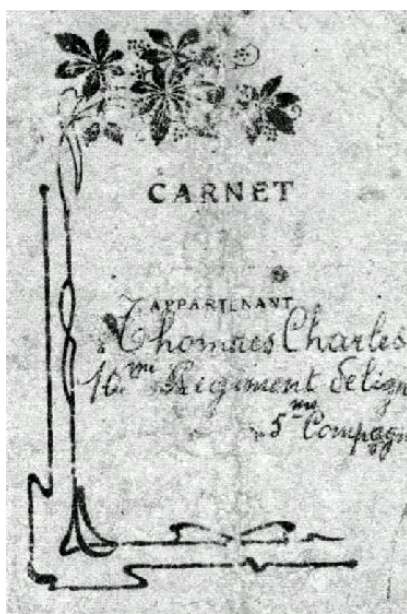 CARNET
APPARTENANT
Thomaes Charles
10.me Regiment de lign
5me Compagn